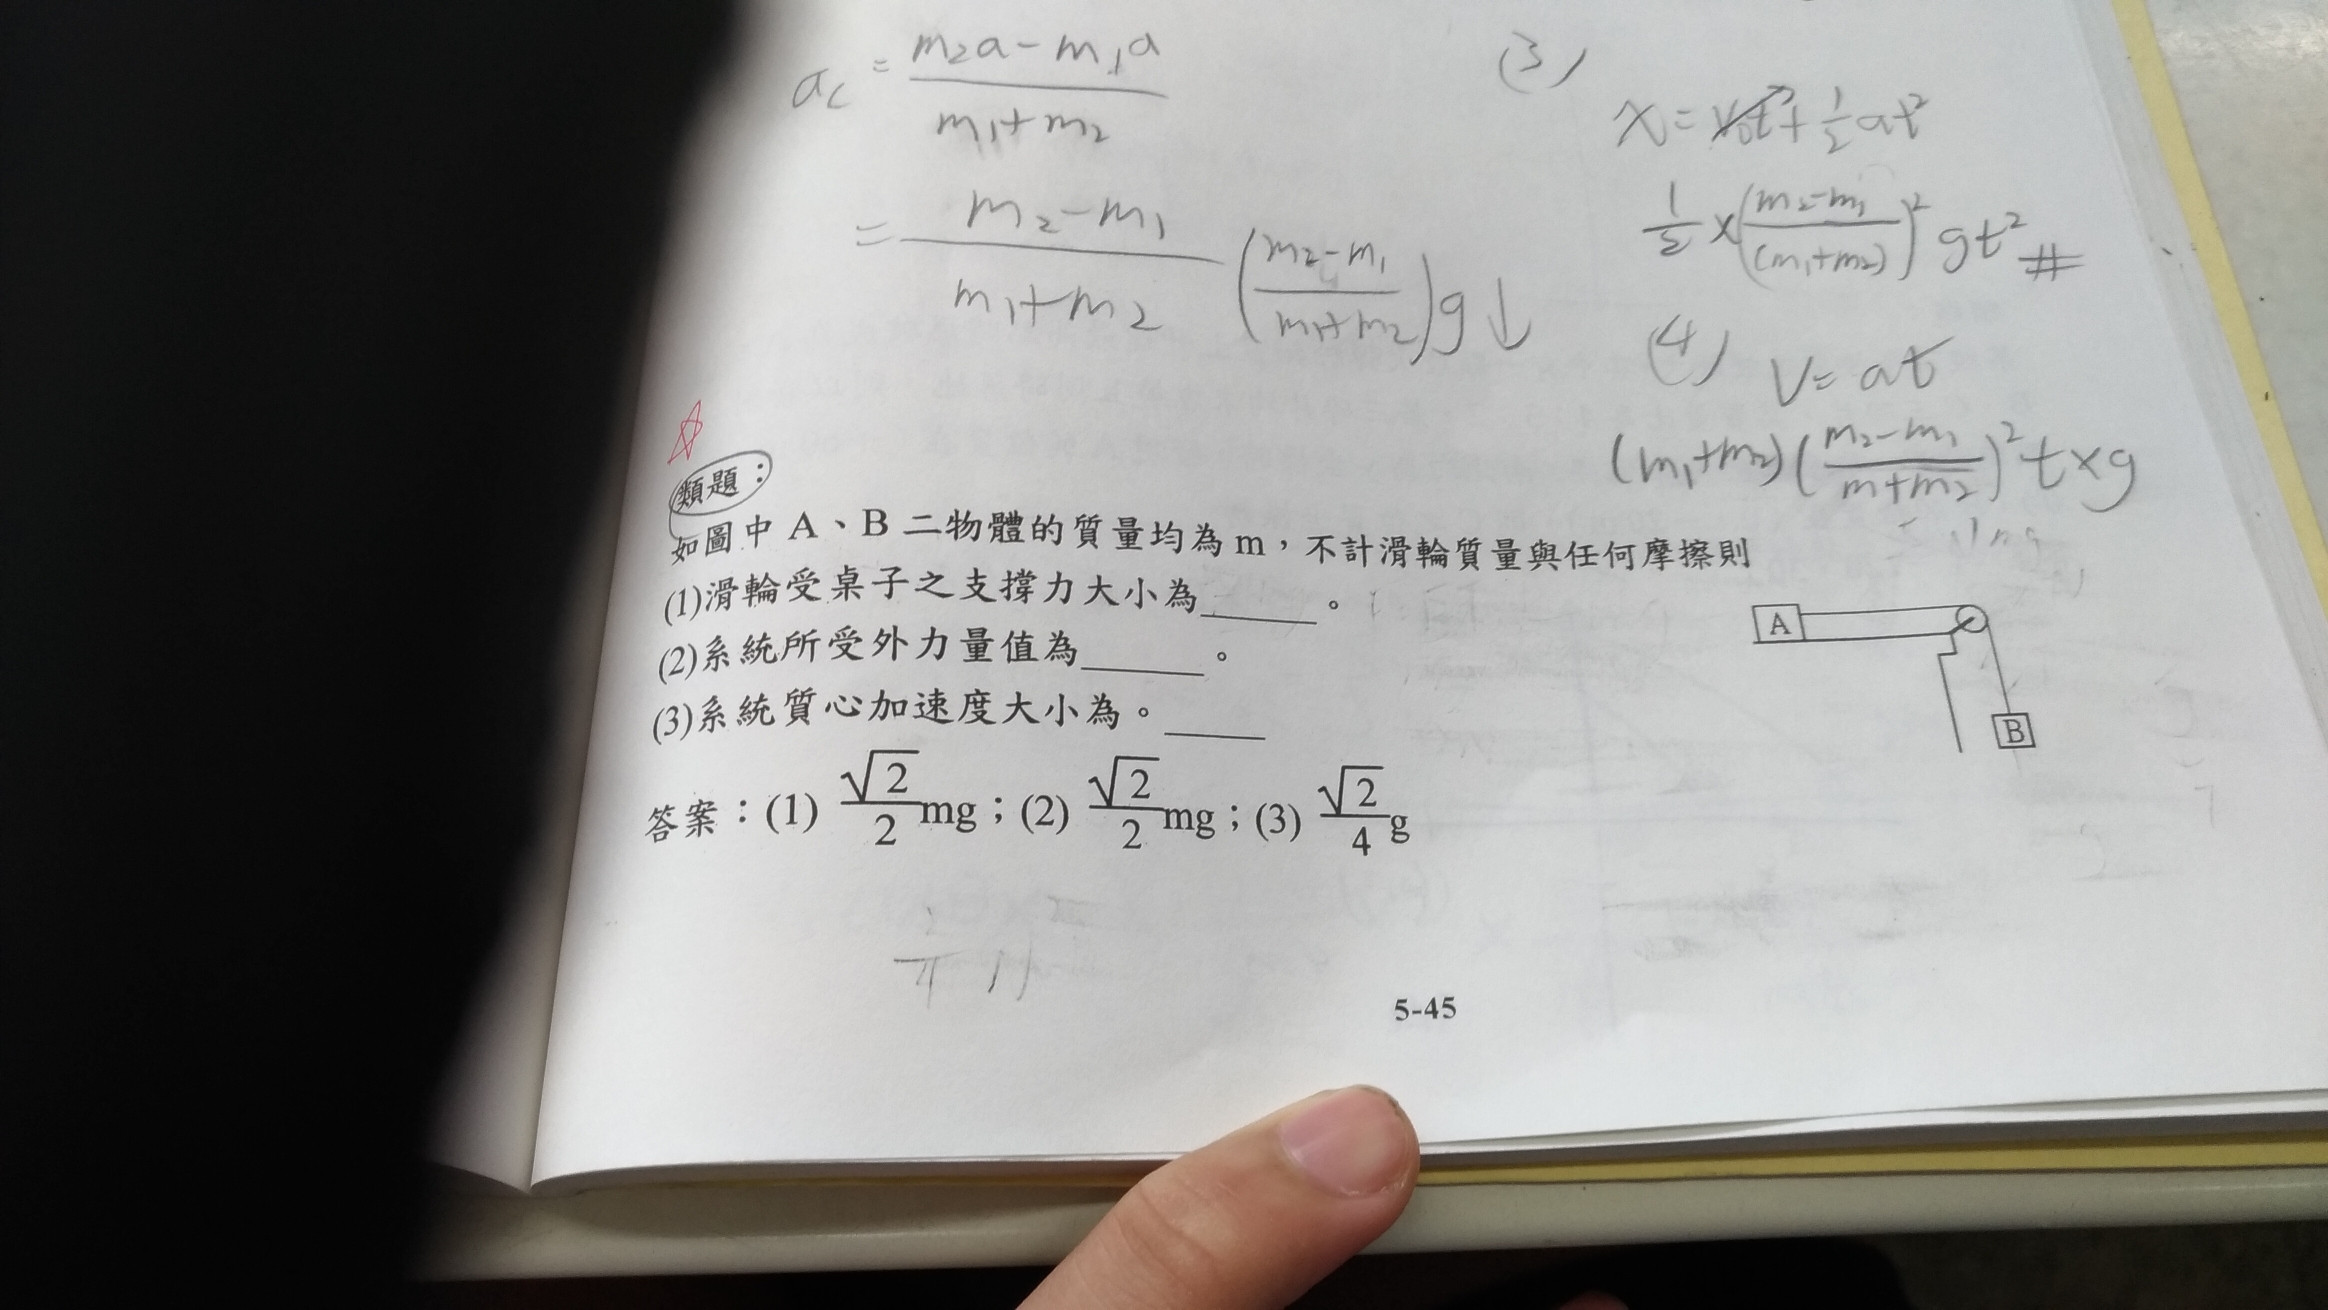 a_c = (m₂a - m₁a)/(m₁+m₂)
= (m₂-m₁)/(m₁+m₂) ((m₂-m₁)/(m₁+m₂))g↓
(3)
x = v₀t + ½at²
½×((m₂-m₁)/(m₁+m₂))²gt² #
(4) V=at
(m₁+m₂)((m₂-m₁)/(m+m₂))²t×g
類題：
如圖中 A、B 二物體的質量均為 m，不計滑輪質量與任何摩擦則
(1)滑輪受桌子之支撐力大小為_____。
(2)系統所受外力量值為_____。
(3)系統質心加速度大小為。_____
A
B
答案：(1) √2/2 mg；(2) √2/2 mg；(3) √2/4 g
5-45